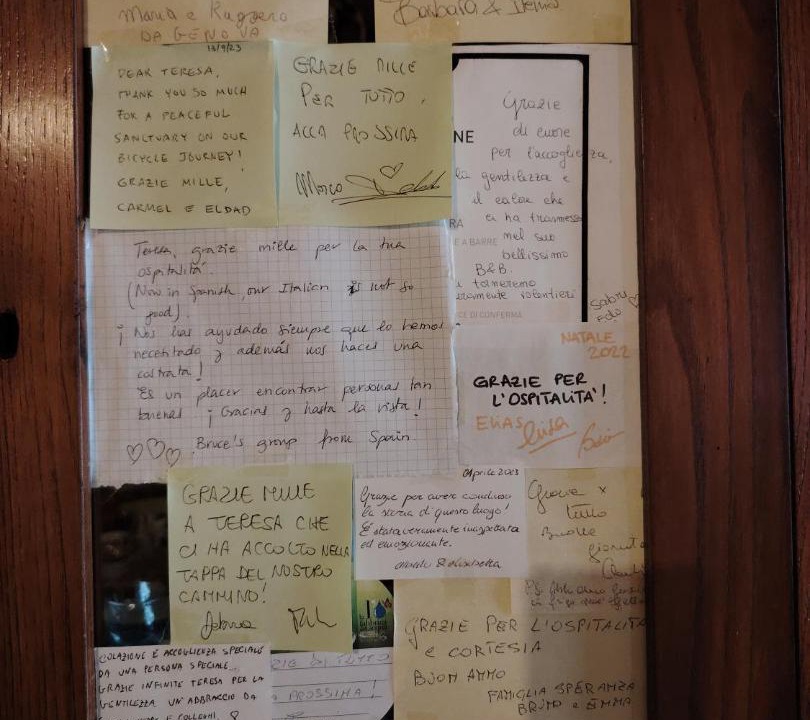 Maria e Ruggero
DA GENOVA
Barbara &
13/9/23
DEAR TERESA,
THANK YOU SO MUCH
FOR A PEACEFUL
SANCTUARY ON OUR
BICYCLE JOURNEY!
GRAZIE MILLE,
CARMEL E ELDAD
GRAZIE MILLE
PER TUTTO,
ALLA PROSSIMA
Marco
NE
RA
E A BARRE
CE DI CONFERMA
Grazie
di cuore
per l'accoglienza,
la gentilezza e
il calore che
ci ha trasmesso
nel suo
bellissimo
B&B.
torneremo
volentieri
Teresa, grazie mille per la tua
ospitalità.
(Now in Spanish, our Italian is not so
good).
¡Nos has ayudado siempre que lo hemos
necesitado y además nos haces una
!
Es un placer encontrar personas tan
buenas ¡Gracias y hasta la vista!
Bruce's group from Spain
NATALE
2022
GRAZIE PER
L'OSPITALITÀ!
ELIAS
Luisa
GRAZIE MILLE
A TERESA CHE
CI HA ACCOLTO NELLA
TAPPA DEL NOSTRO
CAMMINO!
Aprile 2023
Grazie per avere condiviso
la storia di questo luogo!
È stata veramente inaspettata
ed emozionante.
& Elisabetta
Grazie x
tutto
GRAZIE PER L'OSPITALITÀ
e CORTESIA
BUON ANNO
FAMIGLIA SPERANZA
BRUNO e EMMA
COLAZIONE E ACCOGLIENZA SPECIALE
DA UNA PERSONA SPECIALE...
GRAZIE INFINITE TERESA PER LA
GENTILEZZA UN ABBRACCIO DA
E COLLEGHI.
DI TUTTO
PROSSIMA!